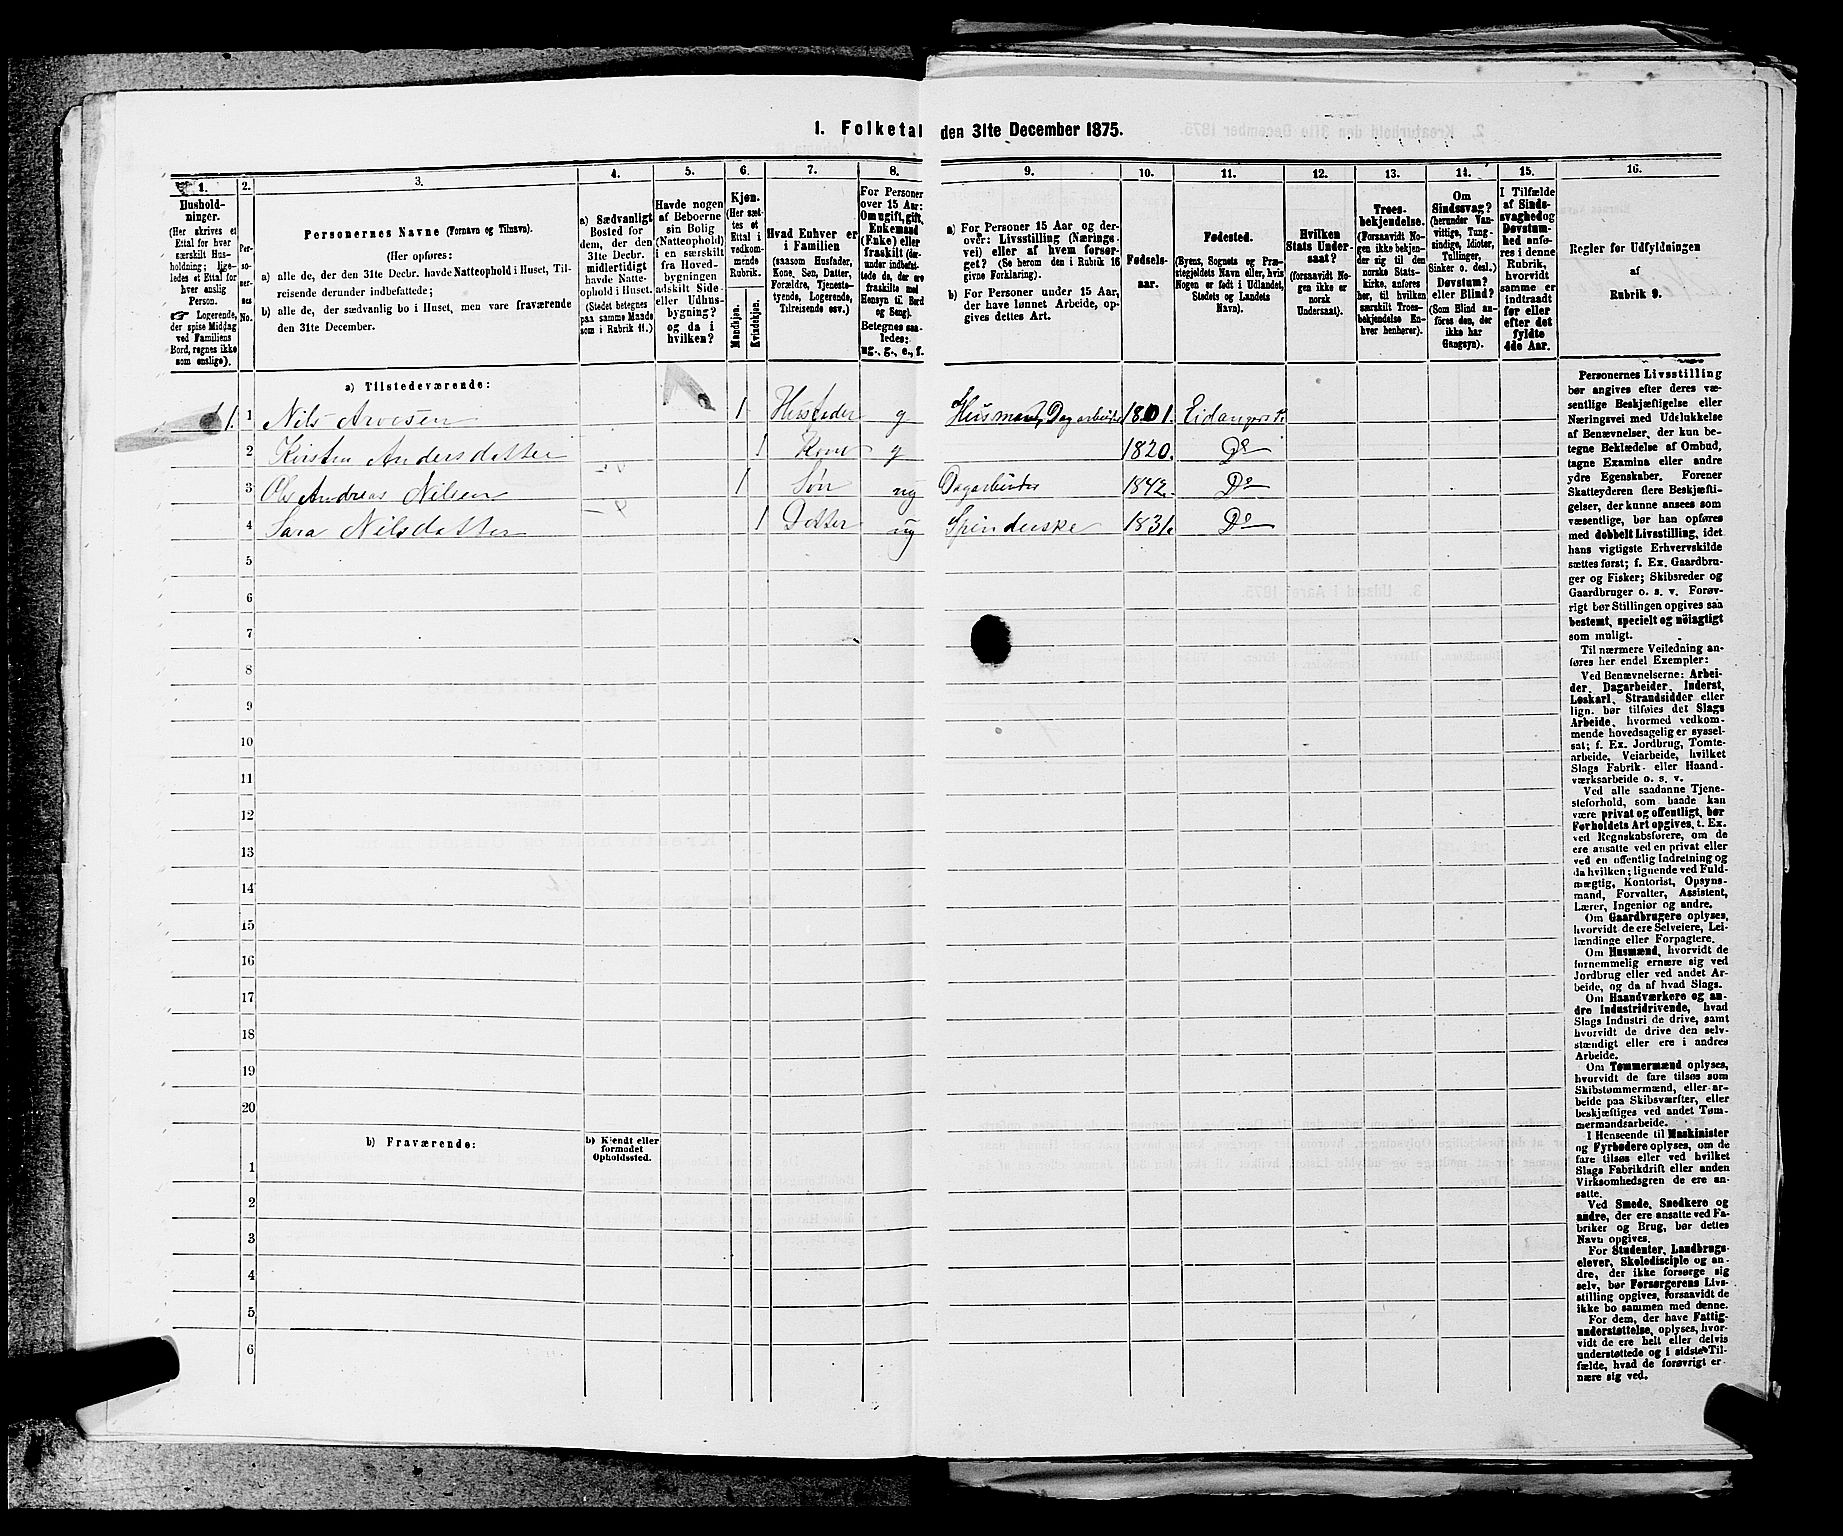 I. Folketal den 31te December 1875.
1.
2.
3.
4.
5.
6.
7.
8.
9.
10.
11.
12.
13.
14.
15.
16.
Hushold-
ninger.
(Her skrives et
Ettal for hver
særskilt Hus-
holdning; lige-
ledes et Ettal for
hver enslig
Person.
☞ Logerende,
der spise Middag
ved Familiens
Bord, regnes ikke
som enslige).
Per-
so-
ner-
nes
No.
Personernes Navne (Fornavn og Tilnavn).
(Her opføres:
a) alle de, der den 31te Decbr. havde Natteophold i Huset, Til-
reisende derunder indbefattede;
b) alle de, der sædvanlig bo i Huset, men vare fraværende
den 31te December.
a) Sædvanligt
Bosted for
dem, der den
31te Decbr.
midlertidigt
havde Natte-
ophold i Huset.
(Stedet betegnes
paa samme Maade
som i Rubrik 11.)
Havde nogen
af Beboerne
sin Bolig
(Natteophold)
i en særskilt
fra Hoved-
bygningen
adskilt Side-
eller Udhus-
bygning?
og da i
hvilken?
Kjøn.
(Her sæt-
tes et
Ettal i
vedkom-
mende
Rubrik.
Mandkjøn.
Kvindekjøn.
Hvad Enhver er
i Familien
(saasom Husfader,
Kone, Søn, Datter,
Forældre, Tjeneste-
tyende, Logerende,
Tilreisende osv.)
For Personer
over 15 Aar:
Om ugift, gift,
Enkemand
(Enke) eller
fraskilt (der-
under indbefat-
tede de, der ere
fraskilte med
Hensyn til Bord
og Seng).
Betegnes saa-
ledes:
ug., g., e., f.
a) For Personer 15 Aar og der-
over: Livsstilling (Nærings-
vei) eller af hvem forsør-
get? (Se herom den i Rubrik 16
givne Forklaring).
b) For Personer under 15 Aar,
der have lønnet Arbeide, op-
gives dettes Art.
Fødsels-
aar.
Fødested.
(Byens, Sognets og Præ-
stegjeldets Navn eller, hvis
Nogen er født i Udlandet,
Stedets og Landets
Navn).
Hvilken
Stats Under-
saat?
(forsaavidt No-
gen ikke er
norsk
Undersaat).
Troes-
bekjendelse.
(Forsaavidt No-
gen ikke bekjen-
der sig til den
norske Stats-
kirke, anføres
her, til hvilken
særskilt Troes-
bekjendelse En-
hver henhører).
Om
Sindssvag?
(herunder Van-
vittige, Tung-
sindige, Idioter,
Tullinger,
Sinker o. desl.)
Døvstum?
eller Blind?
(Som Blind an-
føres den, der
ikke har
Gangsyn).
I Tilfælde
af Sinds-
svaghed og
Døvstum-
hed anfø-
res i denne
Rubrik,
hvorvidt
samme er
indtraadt
før eller
efter det
fyldte
4de Aar.
Regler for Udfyldningen
af
Rubrik 9.
a) Tilstedeværende:
1. 1 Nils Arvesen 1 Husfader g Husmand, Dagarbeider 1801. Eidanger
2 Kirsten Andersdatter 1 Kone g 1820. Do
3 Ole Andreas Nilsen 1 Søn ug Dagarbeider 1842. Do
4 Sara Nilsdatter 1 Datter ug Spinderske 1831. Do
5
6
7
8
9
10
11
12
13
14
15
16
17
18
19
20
b) Fraværende:
b) Kjendt eller
formodet
Opholdssted.
1
2
3
4
5
6
Personernes Livsstilling
bør angives efter deres væ-
sentlige Beskjæftigelse eller
Næringsvei med Udelukkelse
af Benævnelser, der kun be-
tegne Beklædelse af Ombud,
tagne Examina eller andre
ydre Egenskaber. Forener
Skatteyderen flere Beskjæfti-
gelser, der kunne ansees som
væsentlige, bør han opføres
med dobbelt Livsstilling, idet
hans vigtigste Erhvervskilde
sættes først; f. Ex. Gaardbru-
ger og Fisker; Skibsreder og
Gaardbruger o. s. v. Forøv-
rigt bør Stillingen opgives saa
bestemt, specielt og nöiagtigt
som muligt.
Til nærmere Veiledning an-
føres her endel Exempler:
Ved Benævnelserne: Arbei-
der, Dagarbeider, Inderst,
Løskarl, Strandsidder eller
lign. bør tilføies det Slags
Arbeide, hvormed vedkom-
mende hovedsagelig er syssel-
sat; f. Ex. Jordbrug, Tomte-
arbeide, Veiarbeide, hvilket
Slags Fabrik- eller Haand-
værksarbeide o. s. v.
Ved alle saadanne Tjene-
steforhold, som baade kan
være privat og offentligt, bør
Forholdets Art opgives, t. Ex.
ved Regnskabsførere, om de
ere ansatte ved en privat eller
ved en offentlig Indretning og
da hvilken; lignende ved Fuld-
mægtig, Kontorist, Opsyns-
mand, Forvalter, Assistent,
Lærer, Ingeniør og andre.
Om Gaardbrugere oplyses,
hvorvidt de ere Selveiere, Lei-
lændinge eller Forpagtere.
Om Husmænd, hvorvidt de
fornemmelig ernære sig ved
Jordbrug eller ved andet Ar-
beide, og da af hvad Slags.
Om Haandværkere og an-
dre Industridrivende, hvad
Slags Industri de drive, samt
hvorvidt de drive den selv-
stændigt eller ere i andres
Arbeide.
Om Tømmermænd oplyses,
hvorvidt de fare tilsøs som
Skibstømmermænd, eller ar-
beide paa Skibsværfter, eller
beskjæftiges ved andet Tøm-
mermandsarbeide.
I Henseende til Maskinister
og Fyrbødere oplyses, om de
fare tilsøs eller ved hvilket
Slags Fabrikdrift eller anden
Virksomhedsgren de ere an-
satte.
Ved Smede, Snedkere og
andre, der ere ansatte ved Fa-
briker og Brug, bør dettes
Navn opgives.
For Studenter, Landbrugs-
elever, Skoledisciple og an-
dre, der ikke forsørge sig
selv, bør Forsørgerens Livs-
stilling opgives, forsaavidt de
ikke bo sammen med denne.
For dem, der have Fattig-
understøttelse, oplyses, hvor-
vidt de ere helt eller delvis
understøttede og i sidste Til-
fælde, hvad de forøvrigt er-
nære sig ved.